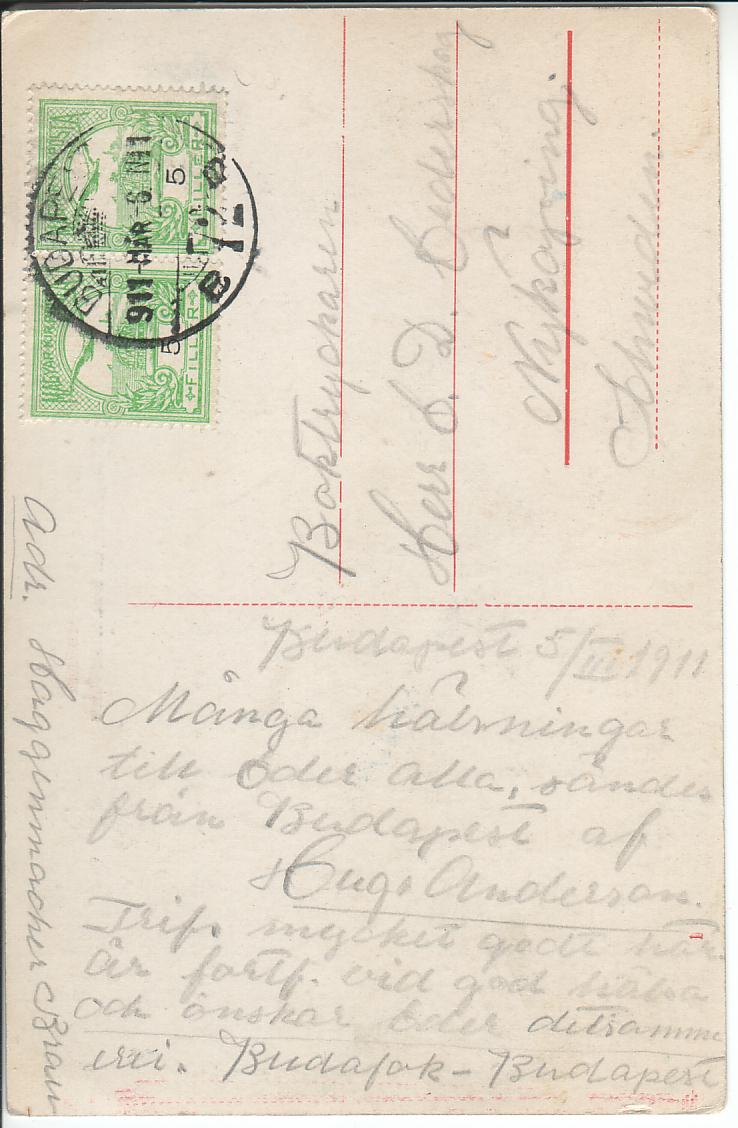 MAGYAR KIR. POSTA
5 FILLÉR 5
BUDAPEST
911 MÁR -6 N11
Boktryckaren
Herr C. D. Cederskog
Nyköping.
Schweden.
Budapest 5/III 1911
Många hälsningar
till Eder alla, sändes
från Budapest af
Hugo Anderson.
Trifs mycket godt här.
Är fortf. vid god hälsa
och önskar Eder detsamma
Budafok - Budapest
Adr. Haggenmacher Brau